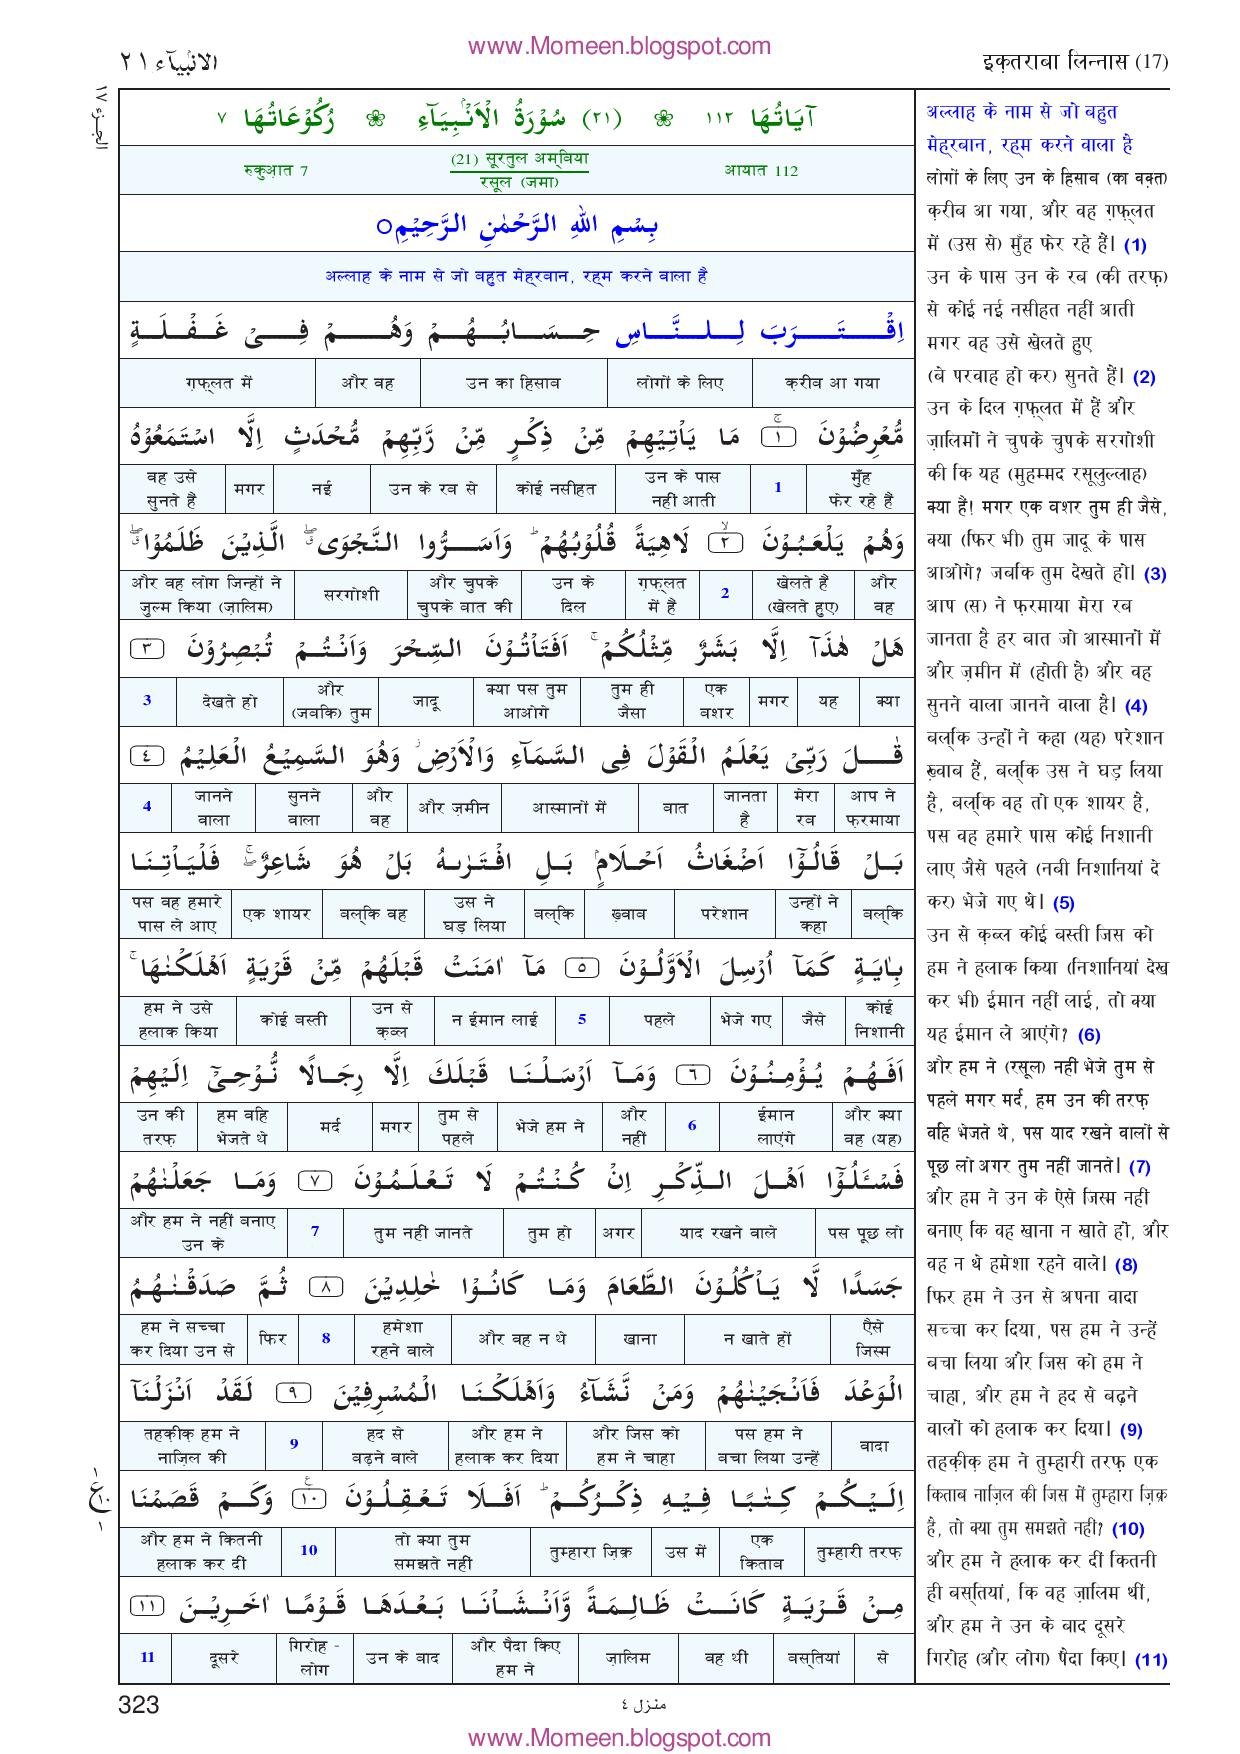 www.Momeen.blogspot.com
الانۢبيآء ٢١
इक़तराबा लिन्नास (17)
الجزء ١٧
اٰيَاتُهَا ١١٢ ❀ (٢١) سُوْرَةُ الْاَنْۢبِيَآءِ ❀ رُكُوْعَاتُهَا ٧
रुकुआ़त 7
(21) सूरतुल अम्बिया
रसूल (जमा)
आयात 112
بِسْمِ اللهِ الرَّحْمٰنِ الرَّحِيْمِ
अल्लाह के नाम से जो बहुत मेह्रबान, रह्म करने वाला है
اِقْتَرَبَ لِلنَّاسِ حِسَابُهُمْ وَهُمْ فِىْ غَفْلَةٍ
ग़फ़्लत में | और वह | उन का हिसाब | लोगों के लिए | क़रीब आ गया
مُّعْرِضُوْنَ ۚ ١ مَا يَاْتِيْهِمْ مِّنْ ذِكْرٍ مِّنْ رَّبِّهِمْ مُّحْدَثٍ اِلَّا اسْتَمَعُوْهُ
वह उसे सुनते हैं | मगर | नई | उन के रब से | कोई नसीहत | उन के पास नहीं आती | 1 | मुँह फेर रहे हैं
وَهُمْ يَلْعَبُوْنَ ۙ ٢ لَاهِيَةً قُلُوْبُهُمْ ؕ وَاَسَرُّوا النَّجْوَى ۖ الَّذِيْنَ ظَلَمُوْا ۖ
और वह लोग जिन्हों ने ज़ुल्म किया (ज़ालिम) | सरगोशी | और चुपके चुपके बात की | उन के दिल | ग़फ़्लत में हैं | 2 | खेलते हैं (खेलते हुए) | और वह
هَلْ هٰذَآ اِلَّا بَشَرٌ مِّثْلُكُمْ ۚ اَفَتَاْتُوْنَ السِّحْرَ وَاَنْتُمْ تُبْصِرُوْنَ ٣
3 | देखते हो | और (जबकि) तुम | जादू | क्या पस तुम आओगे | तुम ही जैसा | एक बशर | मगर | यह | क्या
قٰلَ رَبِّىْ يَعْلَمُ الْقَوْلَ فِى السَّمَآءِ وَالْاَرْضِ ؗ وَهُوَ السَّمِيْعُ الْعَلِيْمُ ٤
4 | जानने वाला | सुनने वाला | और वह | और ज़मीन | आस्मानों में | बात | जानता है | मेरा रब | आप ने फ़रमाया
بَلْ قَالُوْٓا اَضْغَاثُ اَحْلَامٍۢ بَلِ افْتَرٰىهُ بَلْ هُوَ شَاعِرٌ ۖۚ فَلْيَاْتِنَا
पस वह हमारे पास ले आए | एक शायर | बल्कि वह | उस ने घड़ लिया | बल्कि | ख़्वाब | परेशान | उन्हों ने कहा | बल्कि
بِاٰيَةٍ كَمَآ اُرْسِلَ الْاَوَّلُوْنَ ٥ مَآ اٰمَنَتْ قَبْلَهُمْ مِّنْ قَرْيَةٍ اَهْلَكْنٰهَا ۚ
हम ने उसे हलाक किया | कोई बस्ती | उन से क़ब्ल | न ईमान लाई | 5 | पहले | भेजे गए | जैसे | कोई निशानी
اَفَهُمْ يُؤْمِنُوْنَ ٦ وَمَآ اَرْسَلْنَا قَبْلَكَ اِلَّا رِجَالًا نُّوْحِىْٓ اِلَيْهِمْ
उन की तरफ़ | हम वहि भेजते थे | मर्द | मगर | तुम से पहले | भेजे हम ने | और नहीं | 6 | ईमान लाएंगे | और क्या वह (यह)
فَسْـَٔلُوْٓا اَهْلَ الذِّكْرِ اِنْ كُنْتُمْ لَا تَعْلَمُوْنَ ٧ وَمَا جَعَلْنٰهُمْ
और हम ने नहीं बनाए उन के | 7 | तुम नहीं जानते | तुम हो | अगर | याद रखने वाले | पस पूछ लो
جَسَدًا لَّا يَاْكُلُوْنَ الطَّعَامَ وَمَا كَانُوْا خٰلِدِيْنَ ٨ ثُمَّ صَدَقْنٰهُمُ
हम ने सच्चा कर दिया उन से | फिर | 8 | हमेशा रहने वाले | और वह न थे | खाना | न खाते हों | ऐसे जिस्म
الْوَعْدَ فَاَنْجَيْنٰهُمْ وَمَنْ نَّشَآءُ وَاَهْلَكْنَا الْمُسْرِفِيْنَ ٩ لَقَدْ اَنْزَلْنَآ
तहक़ीक़ हम ने नाज़िल की | 9 | हद से बढ़ने वाले | और हम ने हलाक कर दिया | और जिस को हम ने चाहा | पस हम ने बचा लिया उन्हें | वादा
اِلَيْكُمْ كِتٰبًا فِيْهِ ذِكْرُكُمْ ؕ اَفَلَا تَعْقِلُوْنَ ۧ ١٠ وَكَمْ قَصَمْنَا
١ ع ١٠ ١
और हम ने कितनी हलाक कर दीं | 10 | तो क्या तुम समझते नहीं | तुम्हारा ज़िक्र | उस में | एक किताब | तुम्हारी तरफ़
مِنْ قَرْيَةٍ كَانَتْ ظَالِمَةً وَّاَنْشَاْنَا بَعْدَهَا قَوْمًا اٰخَرِيْنَ ١١
11 | दूसरे | गिरोह - लोग | उन के बाद | और पैदा किए हम ने | ज़ालिम | वह थीं | बस्तियां | से
अल्लाह के नाम से जो बहुत
मेह्रबान, रह्म करने वाला है
लोगों के लिए उन के हिसाब (का वक़्त)
क़रीब आ गया, और वह ग़फ़्लत
में (उस से) मुँह फेर रहे हैं। (1)
उन के पास उन के रब (की तरफ़)
से कोई नई नसीहत नहीं आती
मगर वह उसे खेलते हुए
(बे परवाह हो कर) सुनते हैं। (2)
उन के दिल ग़फ़्लत में हैं और
ज़ालिमों ने चुपके चुपके सरगोशी
की कि यह (मुहम्मद रसूलुल्लाह)
क्या हैं! मगर एक बशर तुम ही जैसे,
क्या (फिर भी) तुम जादू के पास
आओगे? जबकि तुम देखते हो। (3)
आप (स) ने फ़रमाया मेरा रब
जानता है हर बात जो आस्मानों में
और ज़मीन में (होती है) और वह
सुनने वाला जानने वाला है। (4)
बल्कि उन्हों ने कहा (यह) परेशान
ख़्वाब हैं, बल्कि उस ने घड़ लिया
है, बल्कि वह तो एक शायर है,
पस वह हमारे पास कोई निशानी
लाए जैसे पहले (नबी निशानियां दे
कर) भेजे गए थे। (5)
उन से क़ब्ल कोई बस्ती जिस को
हम ने हलाक किया (निशानियां देख
कर भी) ईमान नहीं लाई, तो क्या
यह ईमान ले आएंगे? (6)
और हम ने (रसूल) नहीं भेजे तुम से
पहले मगर मर्द, हम उन की तरफ़
वहि भेजते थे, पस याद रखने वालों से
पूछ लो अगर तुम नहीं जानते। (7)
और हम ने उन के ऐसे जिस्म नहीं
बनाए कि वह खाना न खाते हों, और
वह न थे हमेशा रहने वाले। (8)
फिर हम ने उन से अपना वादा
सच्चा कर दिया, पस हम ने उन्हें
बचा लिया और जिस को हम ने
चाहा, और हम ने हद से बढ़ने
वालों को हलाक कर दिया। (9)
तहक़ीक़ हम ने तुम्हारी तरफ़ एक
किताब नाज़िल की जिस में तुम्हारा ज़िक्र
है, तो क्या तुम समझते नहीं? (10)
और हम ने हलाक कर दीं कितनी
ही बस्तियां, कि वह ज़ालिम थीं,
और हम ने उन के बाद दूसरे
गिरोह (और लोग) पैदा किए। (11)
323
منزل ٤
www.Momeen.blogspot.com